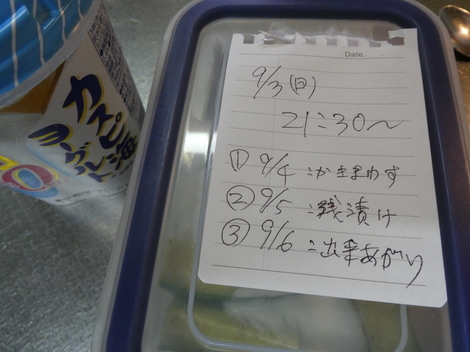 カスピ海
ヨーグルト
Date
9/3(日)
21:30〜
① 9/4 :かきまわす
② 9/5 :浅漬け
③ 9/6 :出来あがり